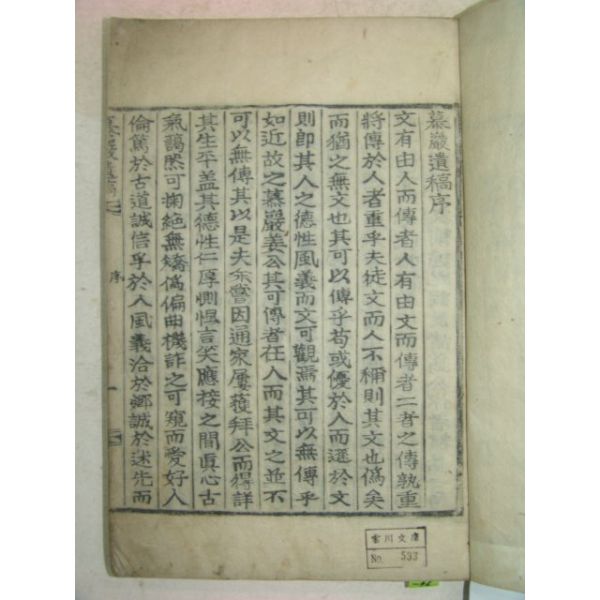 慕巖遺稿序
文有由人而傳者人有由文而傳者二者之傳孰重
將傳於人者重乎夫徒文而人不稱則其文也僞矣
而猶之無文也其可以傳乎苟或優於人而遜於文
則卽其人之德性風義而文可觀焉其可以無傳乎
如近故之慕巖姜公其可傳者在人而其文之並不
可以無傳其以是夫余嘗因通家屢獲拜公而得詳
其生平盖其德性仁厚惻怛言笑應接之間眞心古
氣藹然可掬絶無矯僞偏曲機詐之可窺而愛好人
倫篤於古道誠信孚於人風義洽於鄕誠於述先而
序
一
雷川文庫
No 533